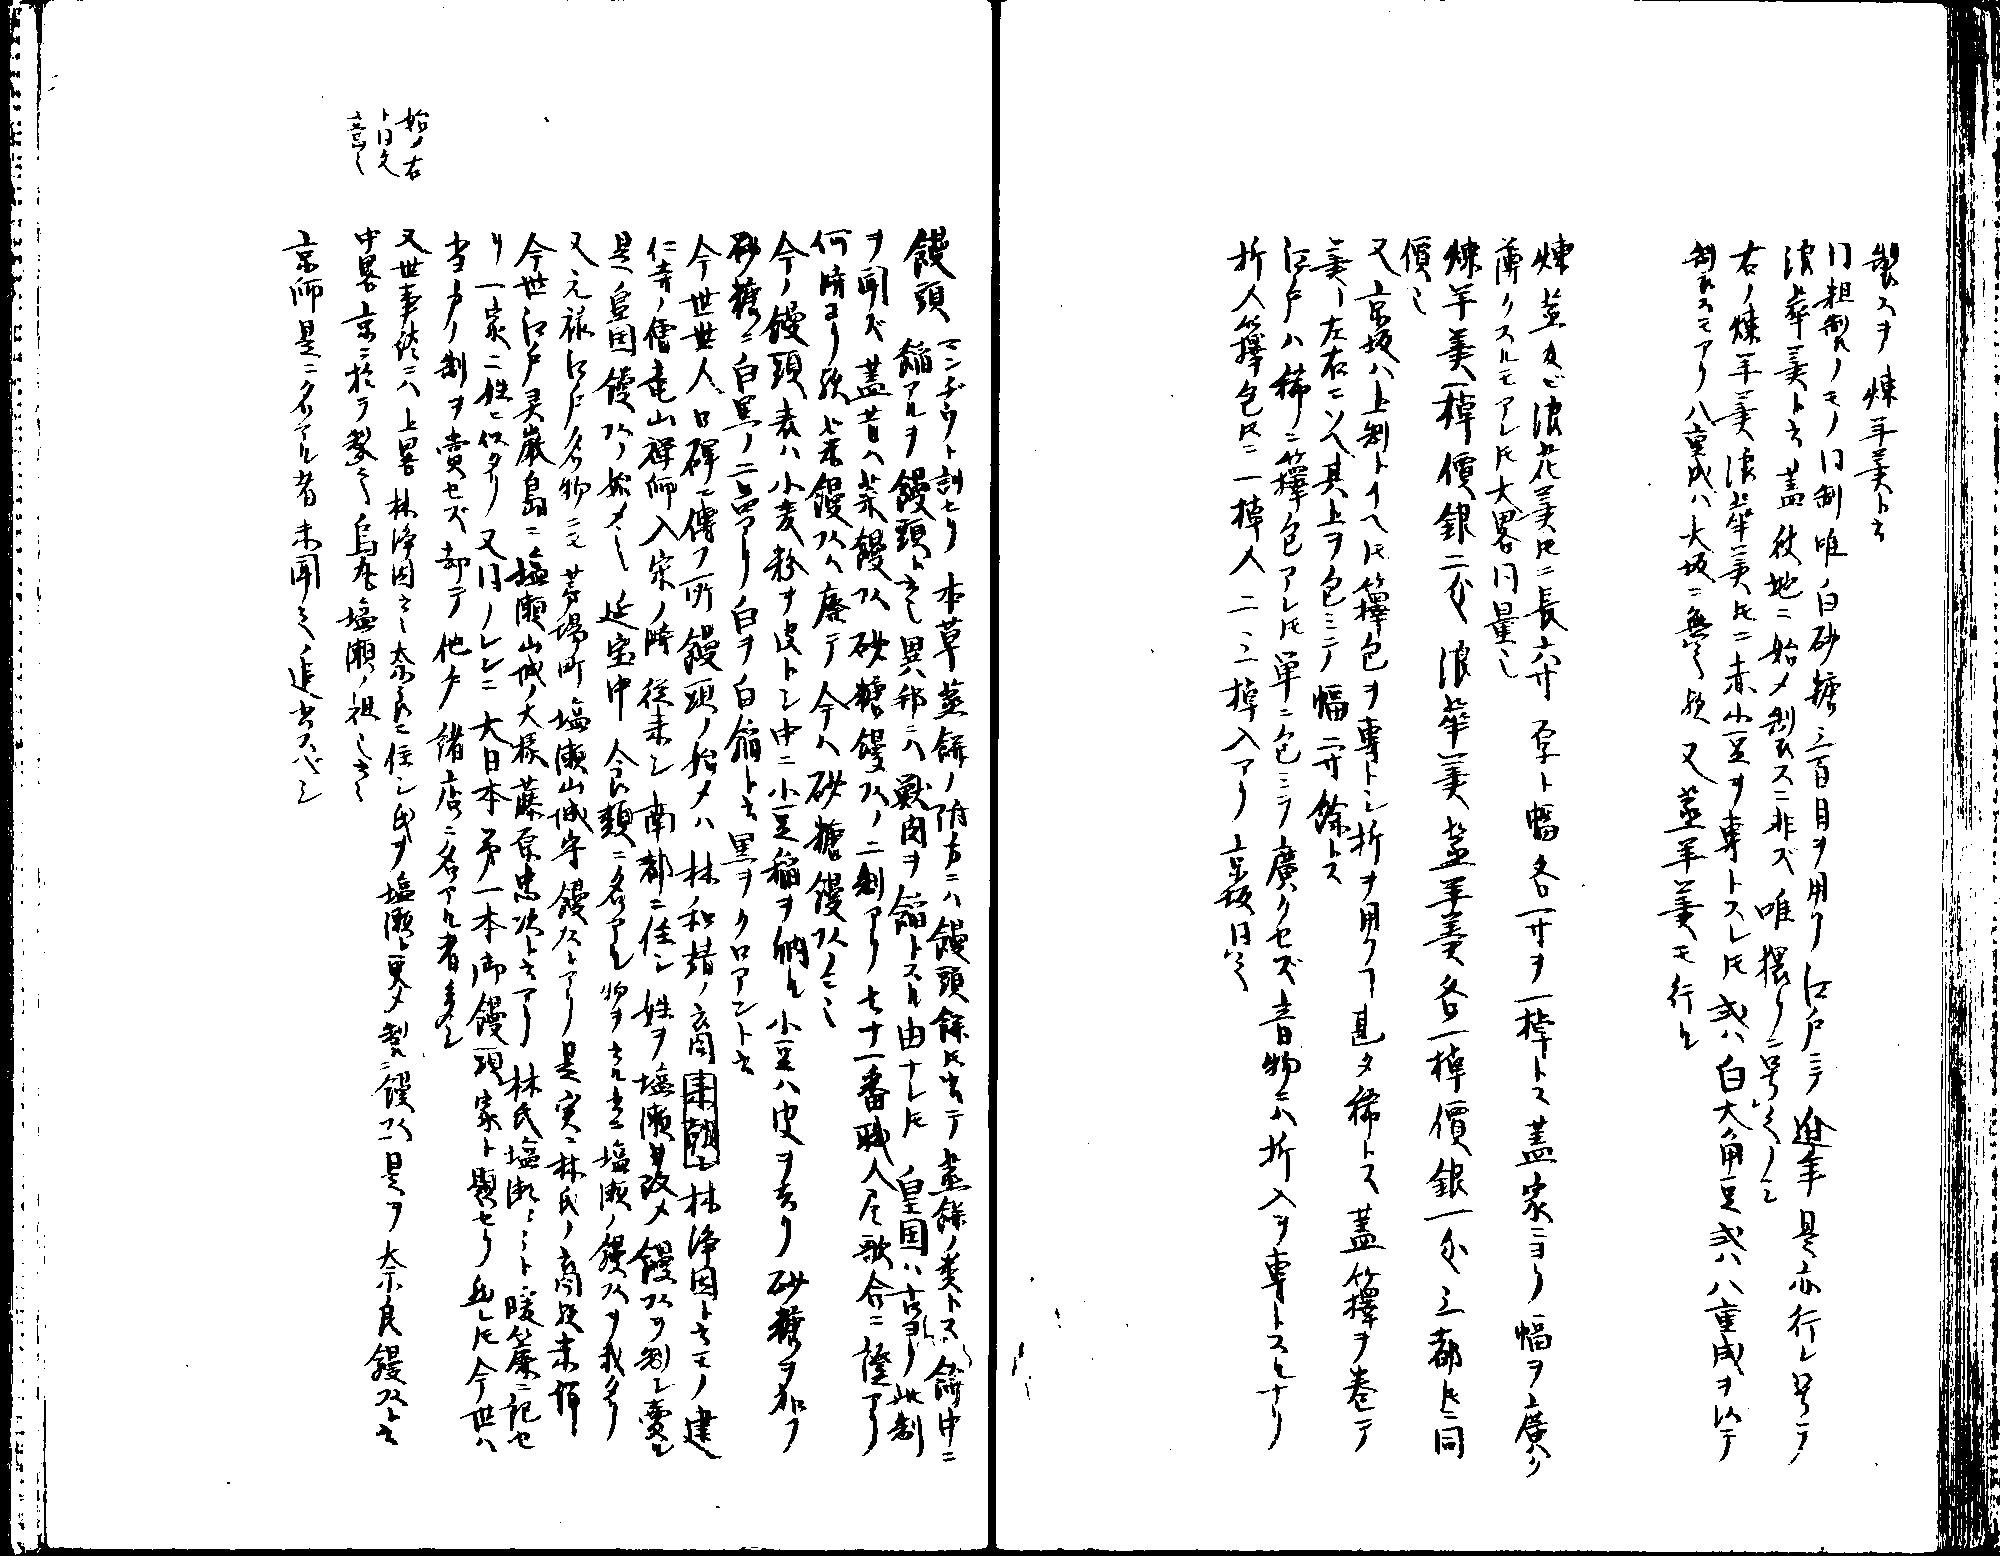 製スヲ煉羊羹ト云
同粗製ノモノ同制唯白砂糖三百目ヲ用フ江戸ニテ近年是亦行レ号テ
浪華羹ト云蓋彼地ニ始メ製スニ非ズ唯猥リニ号之ノミ
右ノ煉羊羹浪華羹トモニ赤小豆ヲ専トスレトモ或ハ白大角豆或ハ八重成ヲ以テ
製スモアリ八重成ハ大坂ニ無之歟又蒸羊羹モ行ル
煉並及ビ浪花羹トモニ長六寸厚ト幅各一寸ヲ一棹トス蓋家ニヨリ幅ヲ廣ク
薄クスルモアレトモ大畧同量也
煉羊羹一棹價銀二匁浪華羹蒸羊羹各一棹價銀一匁三都トモニ同
價也
又京坂ハ上制トイヘトモ籜包ヲ専トシ折ヲ用フコト甚タ稀トス蓋籜ヲ巻テ
羹ノ左右ニソヘ其上ヲ包ミテ幅二寸餘トス
江戸ハ稀ニ籜包アレトモ単ニ包ミテ廣クセズ音物ニハ折入ヲ専トスルナリ
折入籜包トモニ一棹入二三棹入アリ京坂同之
饅頭 マンヂウト訓セリ本草蒸餅ノ附方ニハ饅頭餅トモ云テ蒸餅ノ類トス餅中ニ
餡アルヲ饅頭ト云也異邦ニハ獣肉ヲ餡トスル由ナレトモ皇国ハ古ヨリ此制
ヲ聞ズ蓋昔ハ菜饅頭砂糖饅頭ノ二制アリ七十一番職人尽歌合ニ證アリ
何時ヨリ歟菜饅頭ハ廃テ今ハ砂糖饅頭ノミ也
今ノ饅頭表ハ小麦粉ヲ皮トシ中ニ小豆餡ヲ納ル小豆ハ皮ヲ去リ砂糖ヲ加フ
砂糖ニ白黒ノ二品アリ白ヲ白餡ト云黒ヲクロアント云
今世世人口碑ニ傳フ所饅頭ノ始メハ林和靖ノ裔来朝シ林浄因ト云モノ建
仁寺ノ僧竜山禅師入宋ノ時従来シ南都ニ住シ姓ヲ塩瀬ト改メ饅頭ヲ製シ賣ル
是皇国饅頭ノ始メ也延宝中食類ニ名アル物ヲ云書塩瀬ノ饅頭ヲ載タリ
又元禄江戸名物ニモ茅場町塩瀬山城守饅頭トアリ是実ニ林氏ノ裔歟未詳
今世江戸灵巌島ニ塩瀬山城大掾藤原忠次ト云アリ林氏塩瀬ミミト暖簾ニ記セ
リ一家ニ姓ニ似タリ又同ノレンニ大日本第一本御饅頭家ト題セリ然レトモ今世ハ
当戸ノ制ヲ賞セズ却テ他戸諸店ニ名アル者多シ
又世事談ニハ上畧林浄因云々奈良ニ住シ氏ヲ塩瀬ト更メ製ニ饅頭是ヲ奈良饅頭ト云
中畧京ニ於テ製之烏丸塩瀬ノ祖也云々
京師是ニ名アル者未聞之追書スベシ
始ノ右
ト同文
意也